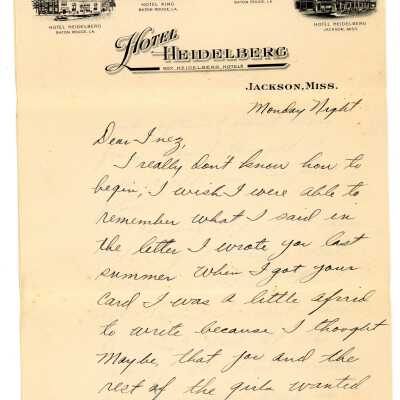 HOTEL HEIDELBERG
BATON ROUGE, LA.
HOTEL KING
BATON ROUGE, LA.
BATON ROUGE, LA.
HOTEL HEIDELBERG
JACKSON, MISS.
HOTEL HEIDELBERG
ROY HEIDELBERG, HOTELS
JACKSON, MISS.
Monday Night
Dear Inez,
I really don't know how to
begin, I wish I were able to
remember what I said in
the letter I wrote you last
summer. When I got your
card I was a little afraid
to write because I thought
Maybe, that you and the
rest of the girls wanted